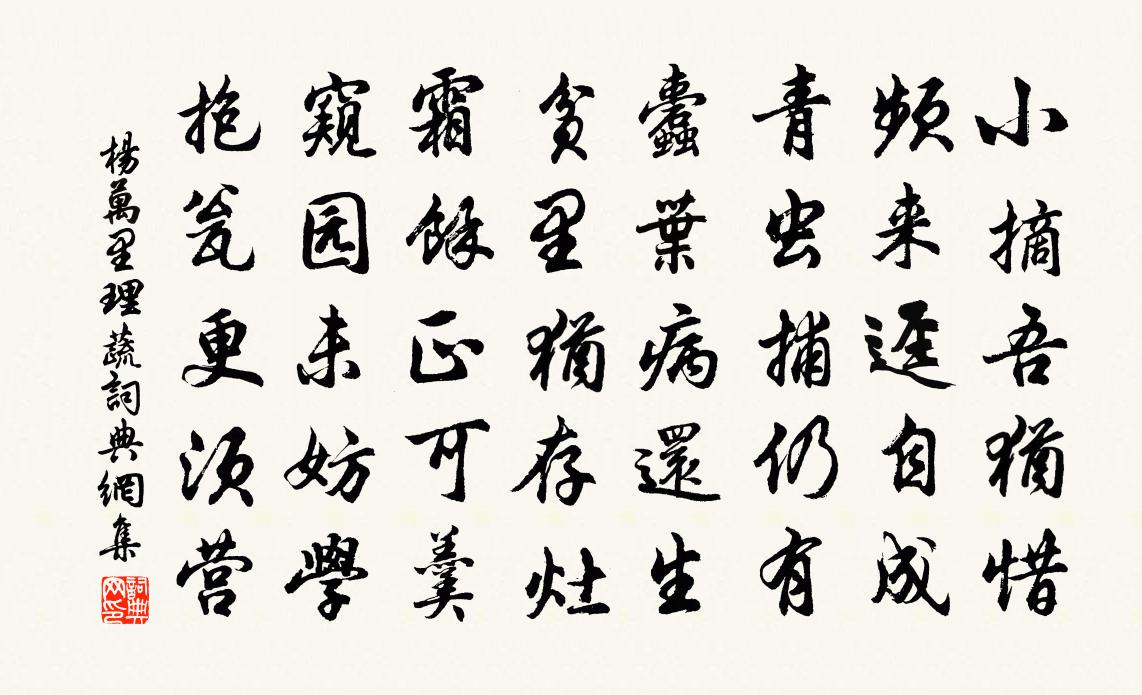 小摘吾猶惜
頻来逕自成
青虫捕仍有
蠹葉病還生
貧里猶存灶
霜餘正可羹
窺园未妨學
抱瓮更须营
楊萬里理蔬詞典網集
詞典网印